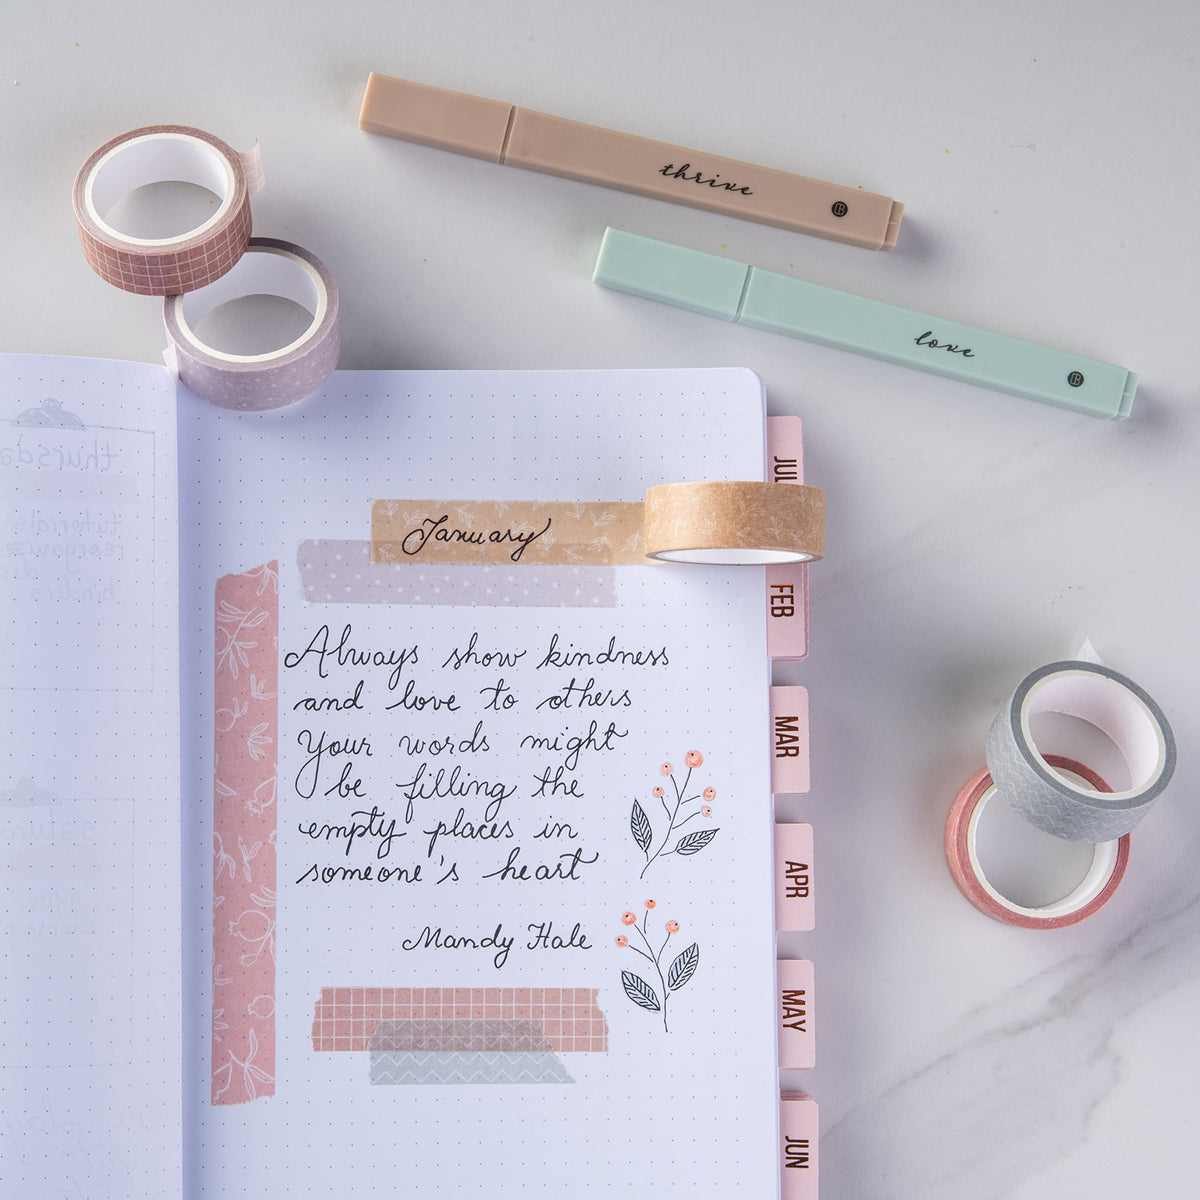 thrive
love
January
Always show kindness
and love to others
Your words might
be filling the
empty places in
someone's heart
Mandy Hale
JUL
FEB
MAR
APR
MAY
JUN
thursda
tutorials
reorganize
binders
gym